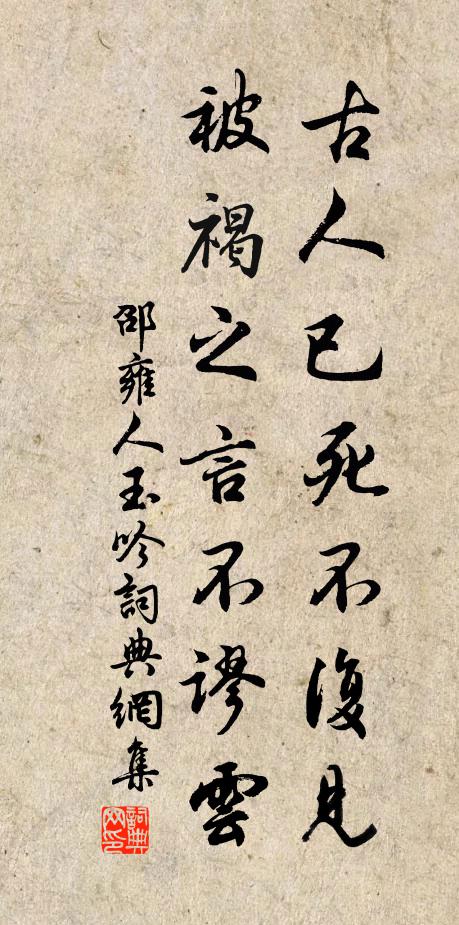 古人已死不復見
被褐之言不謬雲
邵雍人玉吟詞典網集
詞典網印